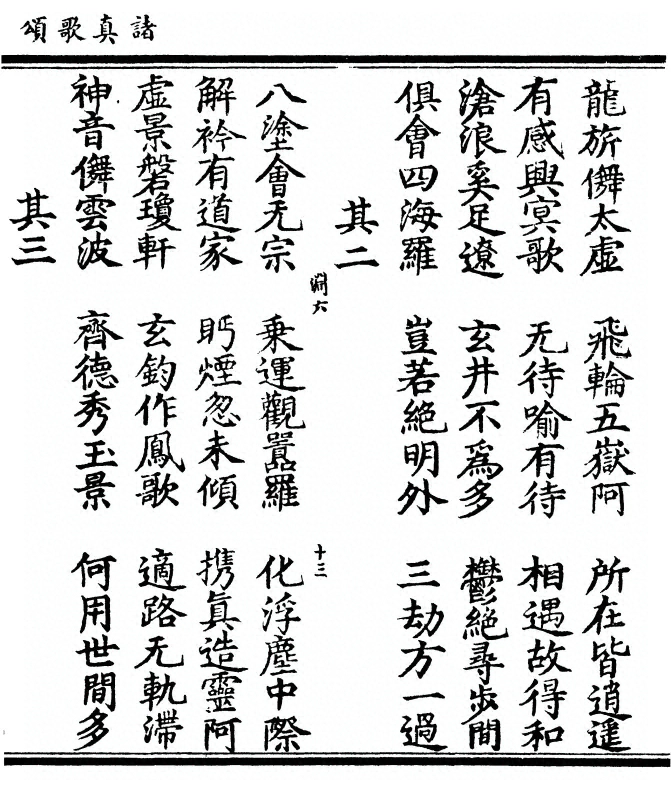 諸真歌頌
龍旂儛太虛　飛輪五嶽阿　所在皆逍遥
有感興冥歌　无待喻有待　相遇故得和
滄浪奚足遼　玄井不爲多　鬱絕尋步間
俱會四海羅　豈若絕明外　三劫方一過
其二
淵六　十三
八塗會无宗　乗運觀囂羅　化浮塵中際
解衿有道家　眄煙忽未傾　携真造靈阿
虛景磐瓊軒　玄鈞作鳳歌　適路无軌滯
神音儛雲波　齊德秀玉景　何用世間多
其三